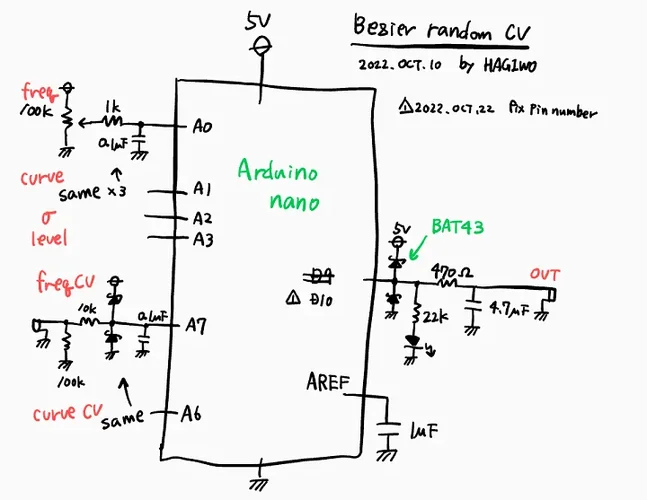 5V
Bezier random CV
2022.OCT.10 by HAGIWO
⚠2022.OCT.22 fix pin number
freq
100k
1k
0.1μF
A0
curve
same ×3
A1
σ
A2
level
A3
Arduino
nano
5V
BAT43
D9
D10
470Ω
OUT
4.7μF
22k
freq CV
10k
0.1μF
A7
100k
AREF
1μF
curve CV
same
A6